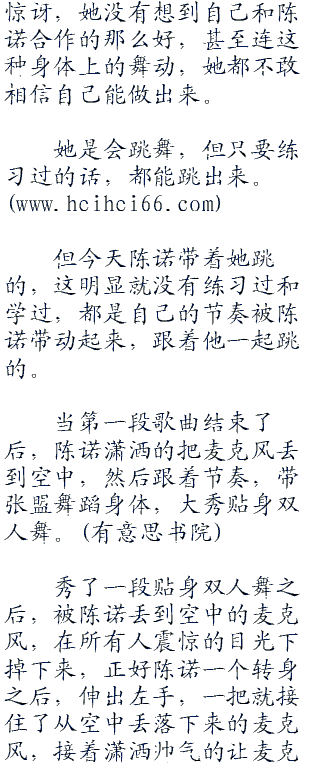 惊讶，她没有想到自己和陈
诺合作的那么好，甚至连这
种身体上的舞动，她都不敢
相信自己能做出来。
她是会跳舞，但只要练
习过的话，都能跳出来。
(www.hcihci66.com)
但今天陈诺带着她跳
的，这明显就没有练习过和
学过，都是自己的节奏被陈
诺带动起来，跟着他一起跳
的。
当第一段歌曲结束了
后，陈诺潇洒的把麦克风丢
到空中，然后跟着节奏，带
张盟舞蹈身体，大秀贴身双
人舞。(有意思书院)
秀了一段贴身双人舞之
后，被陈诺丢到空中的麦克
风，在所有人震惊的目光下
掉下来，正好陈诺一个转身
之后，伸出左手，一把就接
住了从空中丢落下来的麦克
风，接着潇洒帅气的让麦克